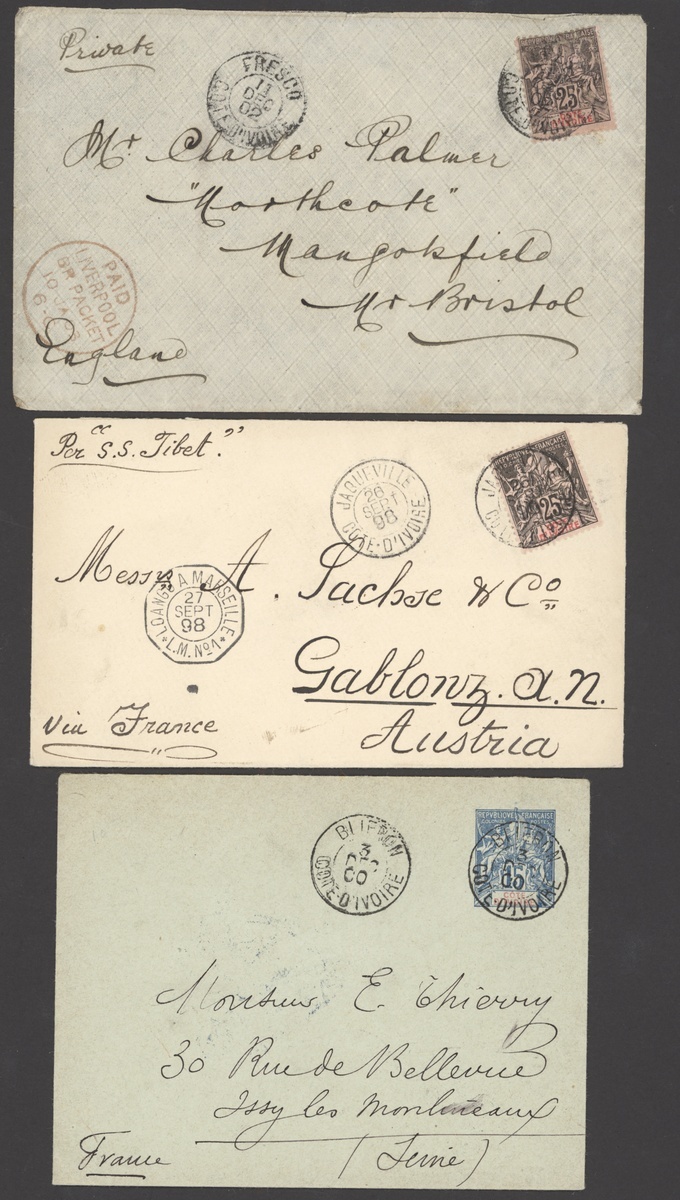 Private
FRESCO
11
DEC
02
COTE-D'IVOIRE
REPUBLIQUE FRANÇAISE
25
Mr Charles Palmer
"Northcote"
Mangotsfield
Nr Bristol
England
PAID
LIVERPOOL
BR PACKET
10 JA 03
Per "S.S. Tibet."
JAQUEVILLE
26
SEPT
98
COTE-D'IVOIRE
REPUBLIQUE FRANÇAISE
25
Messrs A. Sachse & Co
LOANGO A MARSEILLE
27
SEPT
98
L.M. No1
Gablonz. a.N.
Austria
Via France
3
DEC
00
COTE-D'IVOIRE
REPUBLIQUE FRANÇAISE
15
Monsieur E. Thierry
30 Rue de Bellevue
Issy les Moulineaux
France
(Seine)